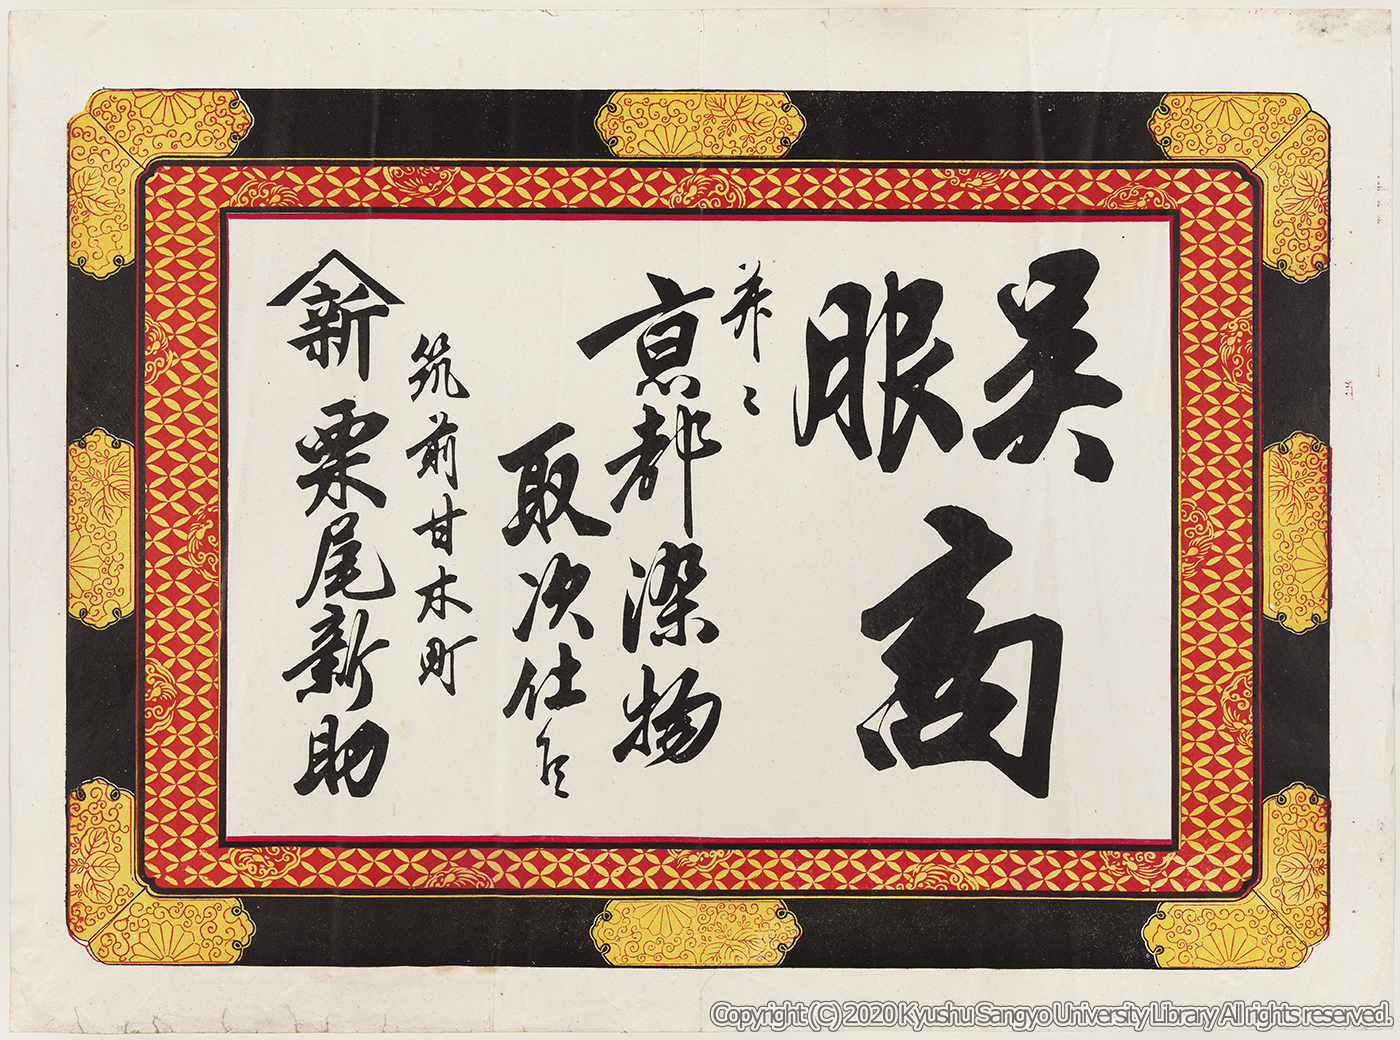 呉服商
并ニ
京都染物
取次仕候
筑前甘木町
新 栗尾新助
Copyright (C) 2020 Kyushu Sangyo University Library All rights reserved.